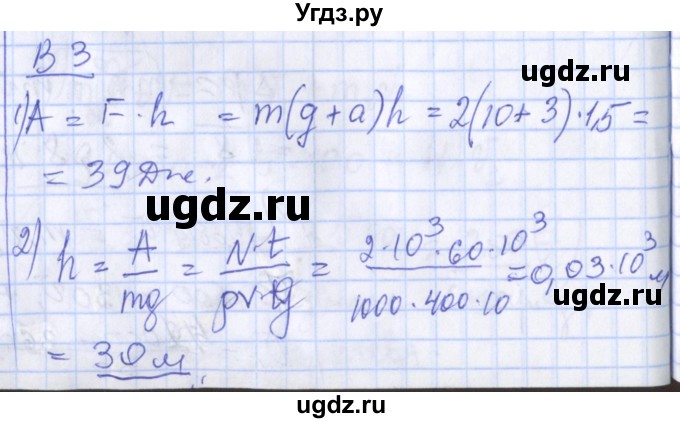 Угдз.ру
В 3
ugdz.ru
1) A = F · h = m(g + a)h = 2(10 + 3) · 1,5 =
= 39 Дж.
ugdz.ru
2) h = A/mg = N·t/ρVg = 2·10³·60·10³/1000·400·10 = 0,03·10³ м
ugdz.ru
= 30 м
ugdz.ru
ugdz.ru